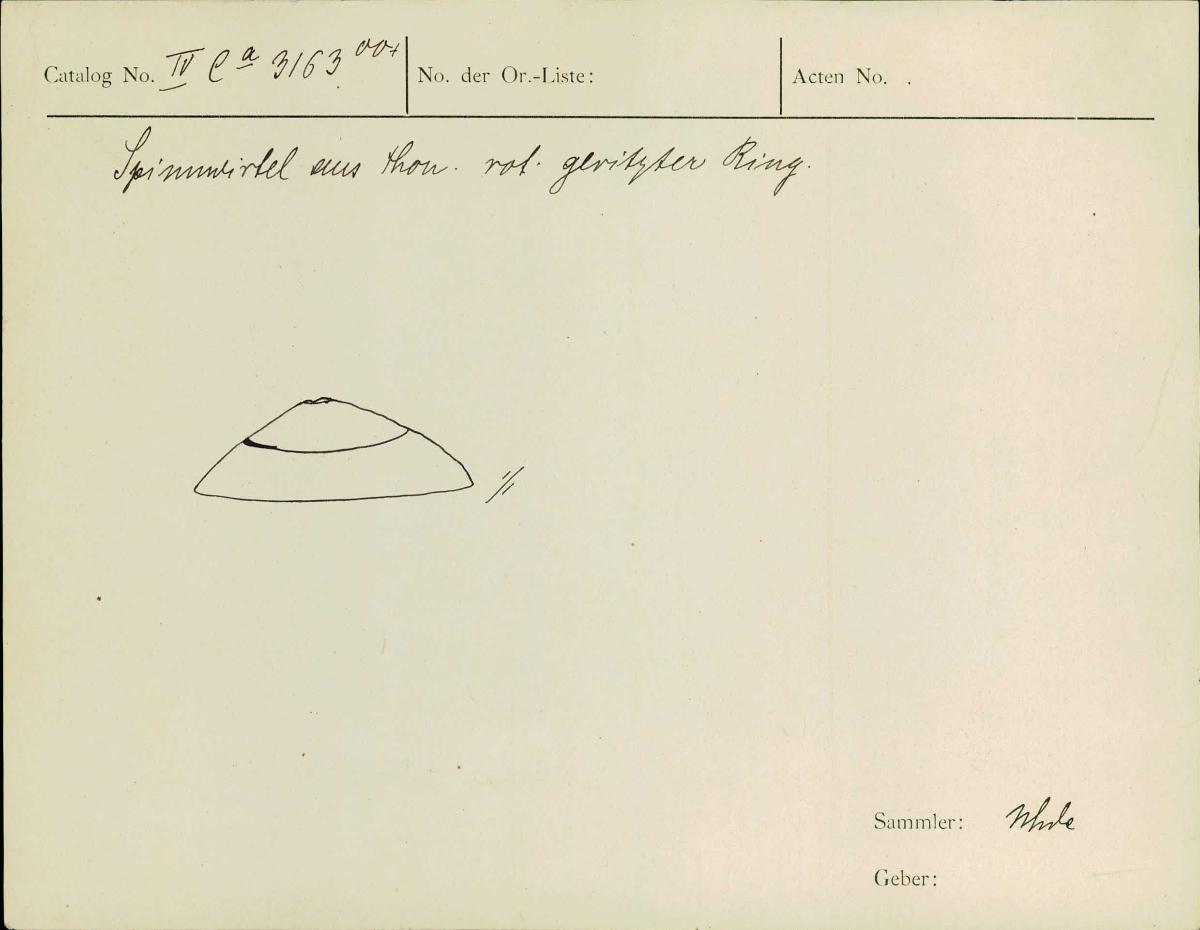 Catalog No. IV Ca 3163 No. der Or.-Liste: Acten No.
Spinnwirtel aus thon. rot. geritzter Ring.
1/1
Sammler: Uhde
Geber: